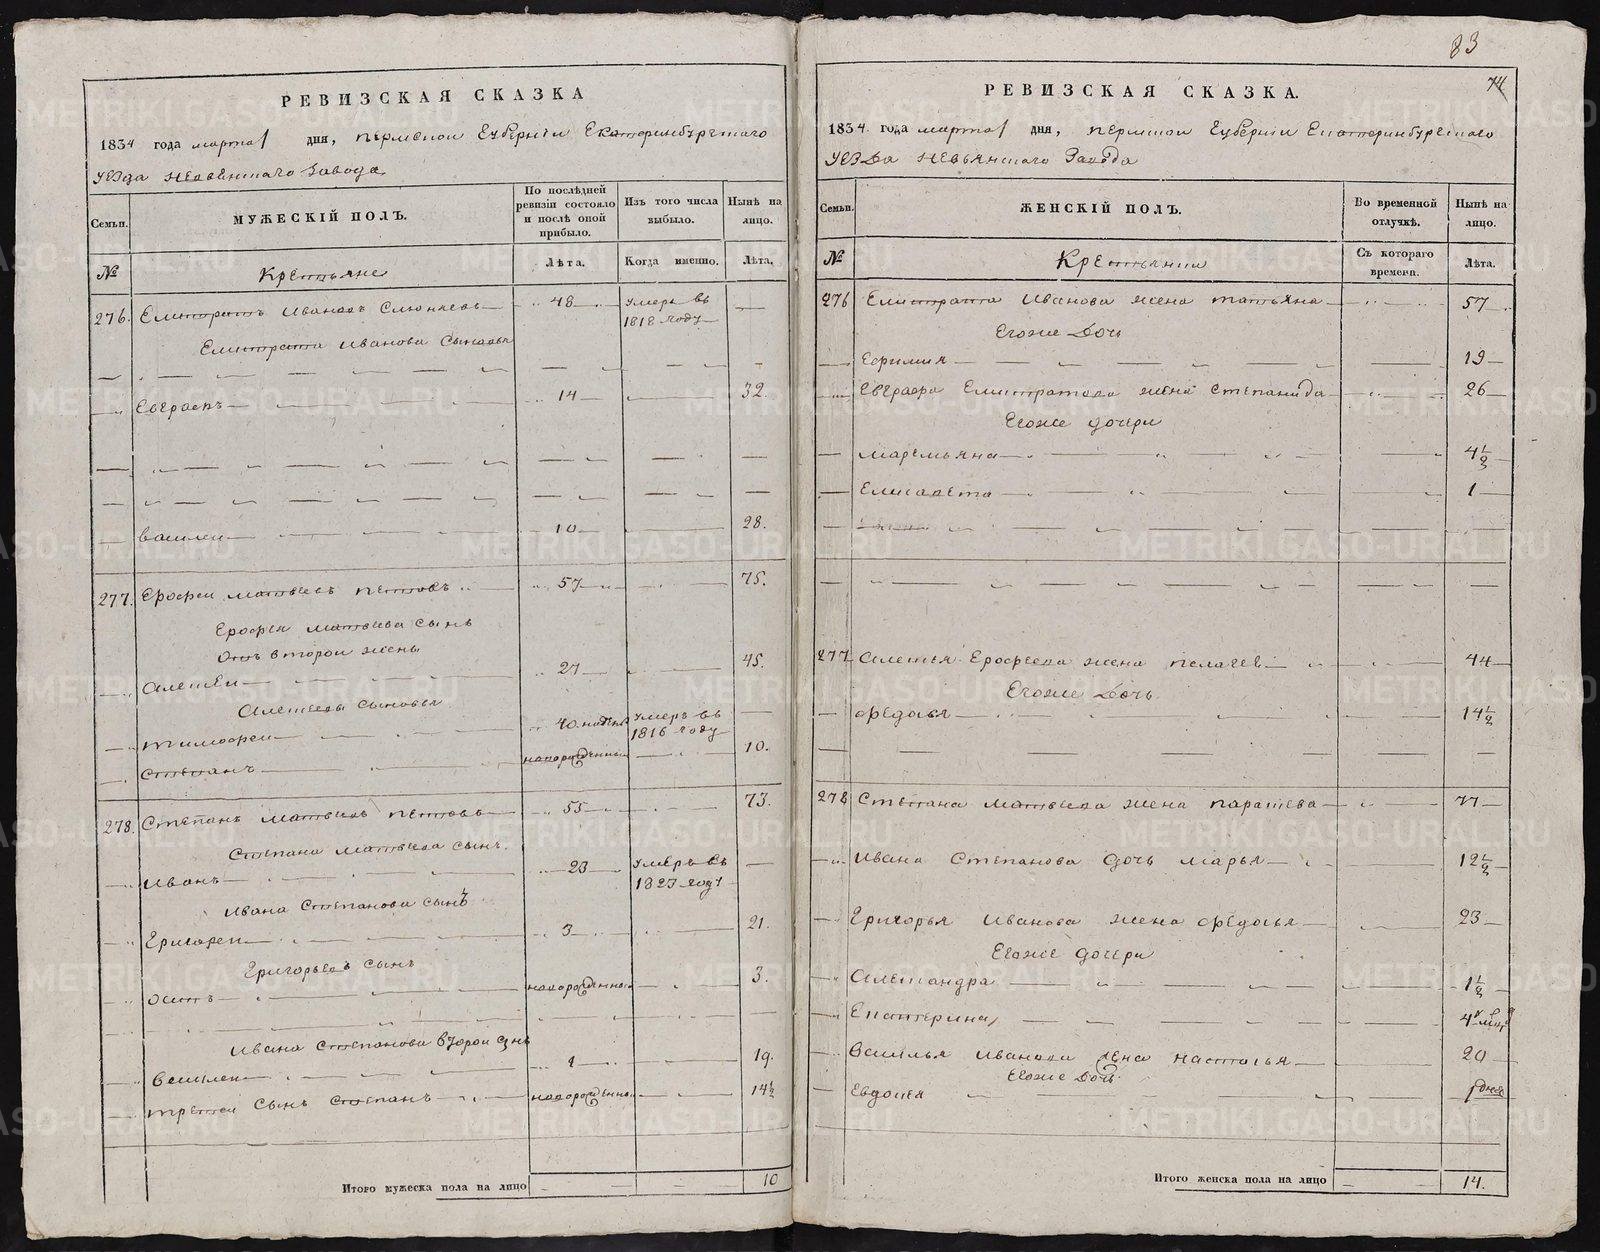 83
РЕВИЗСКАЯ СКАЗКА
1834 года марта 1 дня, пермской Губернїи Екатеринбургского
уезда невьянского завода
Семьи.
МУЖЕСКІЙ ПОЛЪ.
По послѣдней ревизіи состояло и послѣ оной прибыло.
Изъ того числа выбыло.
Нынѣ на лицо.
№
Крестьяне
Лѣта.
Когда именно.
Лѣта.
276. Иванов 48 умеръ въ 1818 году
Иванова Сыновья
14 32.
василеи 10 28.
277. Ерофеи матвеевъ петровъ 57 75.
Ерофея матвеева сынъ
Отъ второи жены
Алексеи 27 45.
Алексеевы сыновья
тимофеи 40. недель умеръ въ 1816 году
степанъ новорожденныи 10.
278. Степанъ матвеевъ петровъ 55 73.
Степана матвеева сынъ
иванъ 23 умеръ въ 1827 году
ивана степанова сынъ
Григореи 3 21.
Григорьевъ сынъ
осипъ новорожденныи 3.
Ивана степанова второи сынъ
василеи 1 19.
третеи сынъ степанъ новорожденныи 14½
Итого мужеска пола на лицо 10
РЕВИЗСКАЯ СКАЗКА.
74
1834 года марта 1 дня, пермской Губернїи Екатеринбургского
уезда невьянского завода
Семьи.
ЖЕНСКІЙ ПОЛЪ.
Во временной отлучкѣ.
Нынѣ на лицо.
№
Крестьянки
Съ котораго времени.
Лѣта.
276 Иванова жена татьяна 57
Егоже Дочь
Ефимия 19
жена степанида 26
Егоже дочери
маремьяна 4½
Елисавета 1
277 Алексея Ерофеева жена пелагея 44
Егоже Дочь
федосья 14½
278 Степана матвеева жена парасхева 77
Ивана Степанова дочь марья 12½
Григорья Иванова жена федосья 23
Егоже дочери
Александра 1½
Екатерина 4 мца
Василья Иванова жена настасья 20
Егоже Дочь
Евдокея 1 дней
Итого женска пола на лицо 14.
METRIKI.GASO-URAL.RU